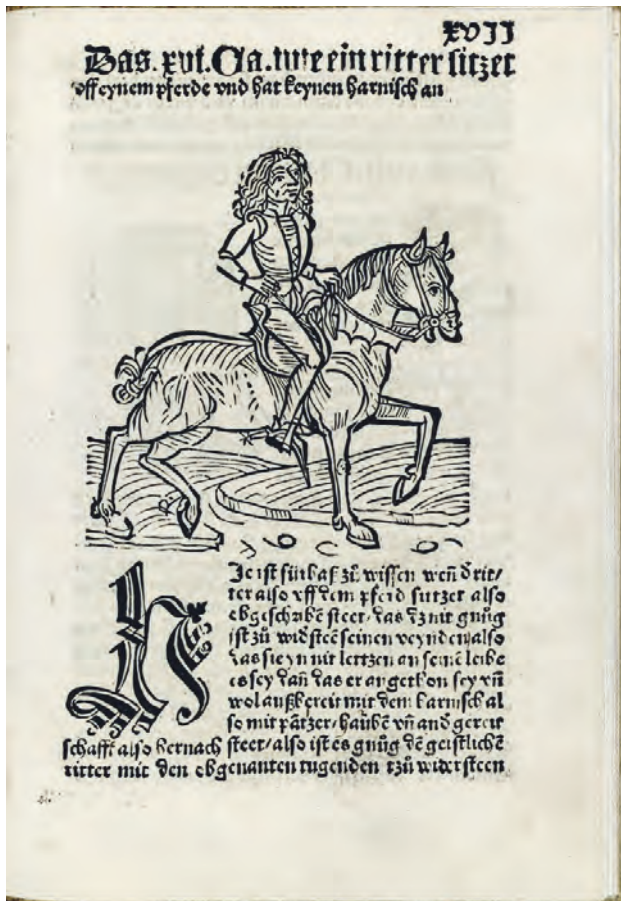 XVII
Das. xvi. Ca. wie ein ritter sitzet
vff eynem pferde vnd hat keynen harnisch an
HJe ist fürbaß zů wissen weñ ð rit/
ter also vff dem pferd sitzet also
obgeschribē steet/ das dz nit gnůg
ist zů widsteē seinen veynden also
das sie yn nit letzen an seinē leibe
es sey dañ das er angethon sey vñ
wol außbereit mit dem harnisch al
so mit pātzer/ haubē vñ and gereit
schafft also hernach steet/ also ist es gnůg dē geistlichē
ritter mit den obgenanten tugenden tzů widersteen